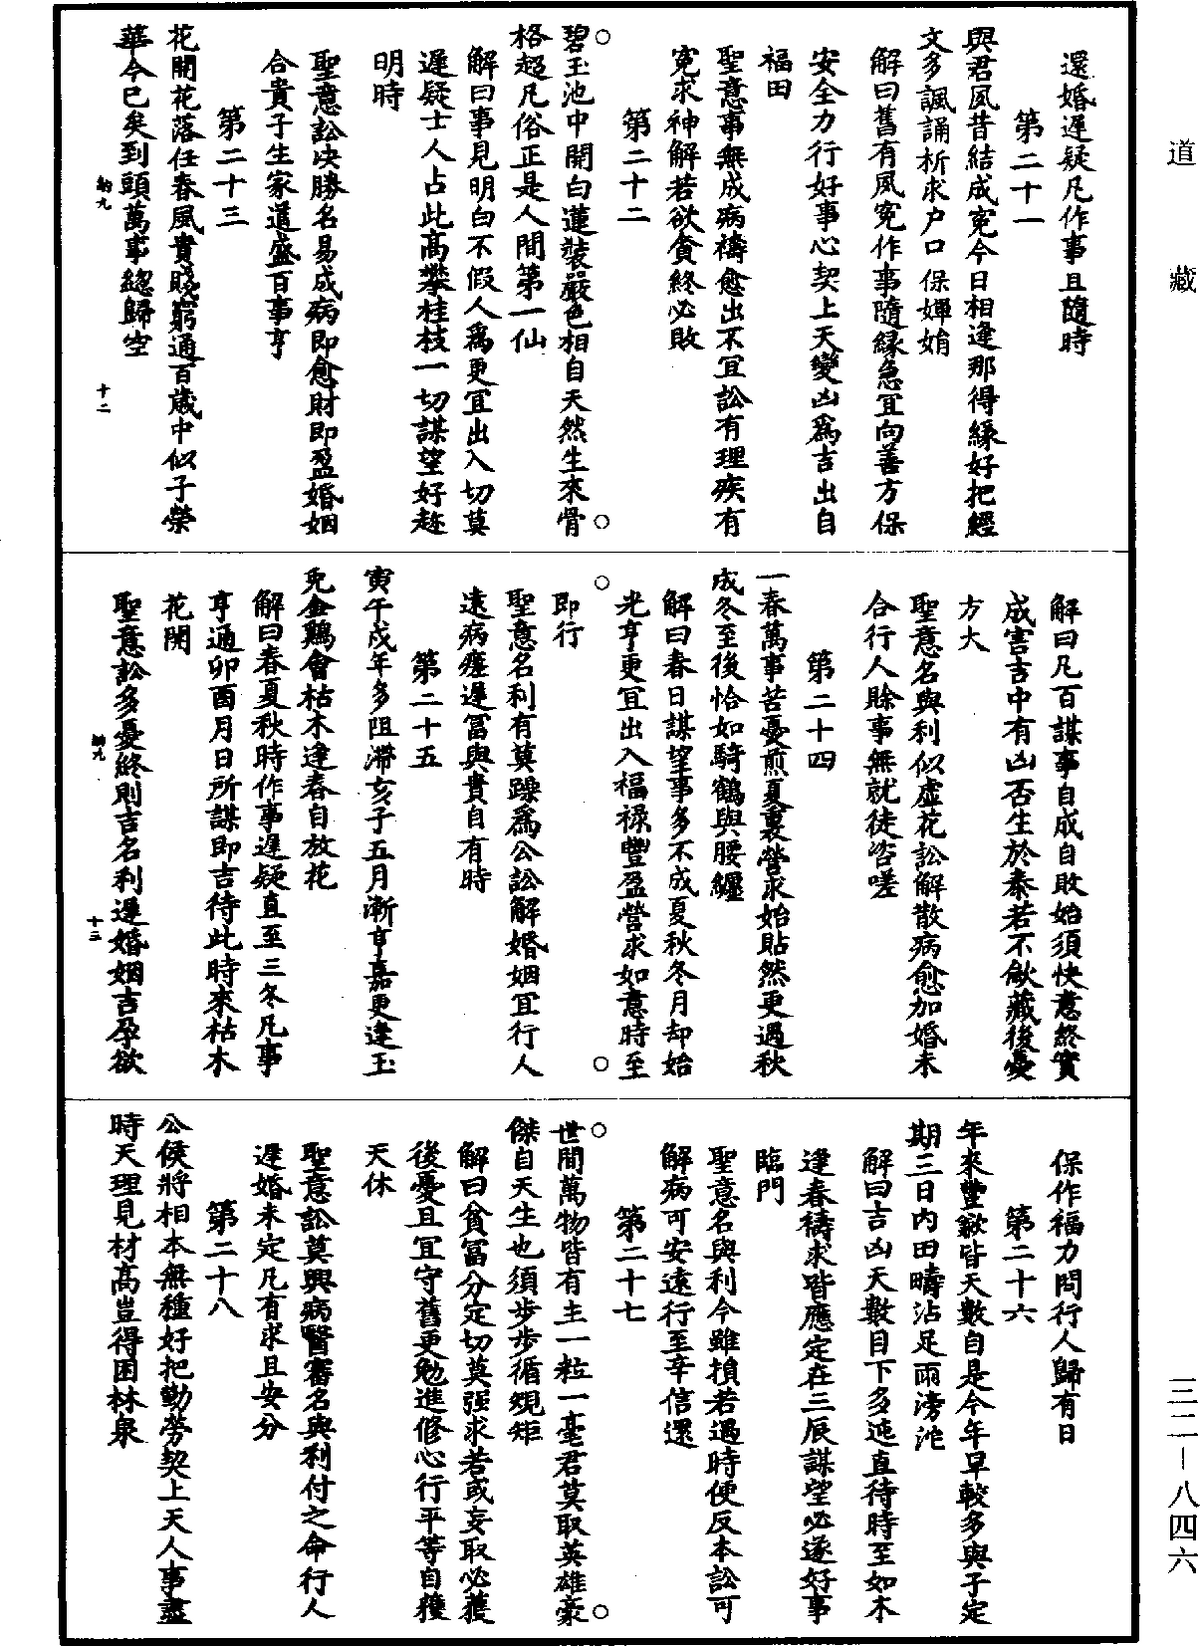 道藏
還婚遲疑凡作事且隨時
第二十一
與君夙昔結成寃今日相逢那得緣好把經
文多諷誦祈求户口保嬋娟
解曰舊有夙寃作事隨緣急宜向善方保
安全力行好事心契上天變凶爲吉出自
福田
聖意事無成病禱愈出不宜訟有理疾有
寃求神解若欲貪終必敗
第二十二
碧玉池中開白蓮裝嚴色相自天然生來骨
格超凡俗正是人間第一仙
解曰事見明白不假人爲更宜出入切莫
遲疑士人占此高攀桂枝一切謀望好趂
明時
聖意訟決勝名易成病即愈財即盈婚姻
合貴子生家道盛百事亨
第二十三
花開花落任春風貴賤窮通百歲中似子榮
華今已矣到頭萬事總歸空
納九
十二
解曰凡百謀事自成自敗始須快意終實
成害吉中有凶否生於泰若不斂藏後憂
方大
聖意名與利似虛花訟解散病愈加婚未
合行人賒事無就徒咨嗟
第二十四
一春萬事苦憂煎夏裏營求始貼然更遇秋
成冬至後恰如騎鶴與腰纏
解曰春日謀望事多不成夏秋冬月却始
光亨更宜出入福禄豐盈營求如意時至
即行
聖意名利有莫躁爲公訟解婚姻宜行人
遠病瘥遲冨與貴自有時
第二十五
寅午戍年多阻滯亥子五月漸亨嘉更逢玉
兎金鷄會枯木逢春自放花
解曰春夏秋時作事遲疑直至三冬凡事
亨通卯酉月日所謀即吉待此時來枯木
花開
聖意訟多憂終則吉名利遲婚姻吉孕欲
納九
十三
保作福力問行人歸有日
第二十六
年來豐歉皆天數自是今年旱較多與子定
期三日内田疇沾足雨滂沱
解曰吉凶天數目下多迍直待時至如木
逢春禱求皆應定在三辰謀望必遂好事
臨門
聖意名與利今雖損若遇時便反本訟可
解病可安遠行至辛信還
第二十七
世間萬物皆有主一粒一毫君莫取英雄豪
傑自天生也須步步循規矩
解曰貧冨分定切莫强求若或妄取必獲
後憂且宜守舊更勉進修心行平等自獲
天休
聖意訟莫興病醫審名與利付之命行人
遲婚未定凡有求且安分
第二十八
公侯將相本無種好把勤勞契上天人事盡
時天理見材高豈得困林泉
三二－八四六